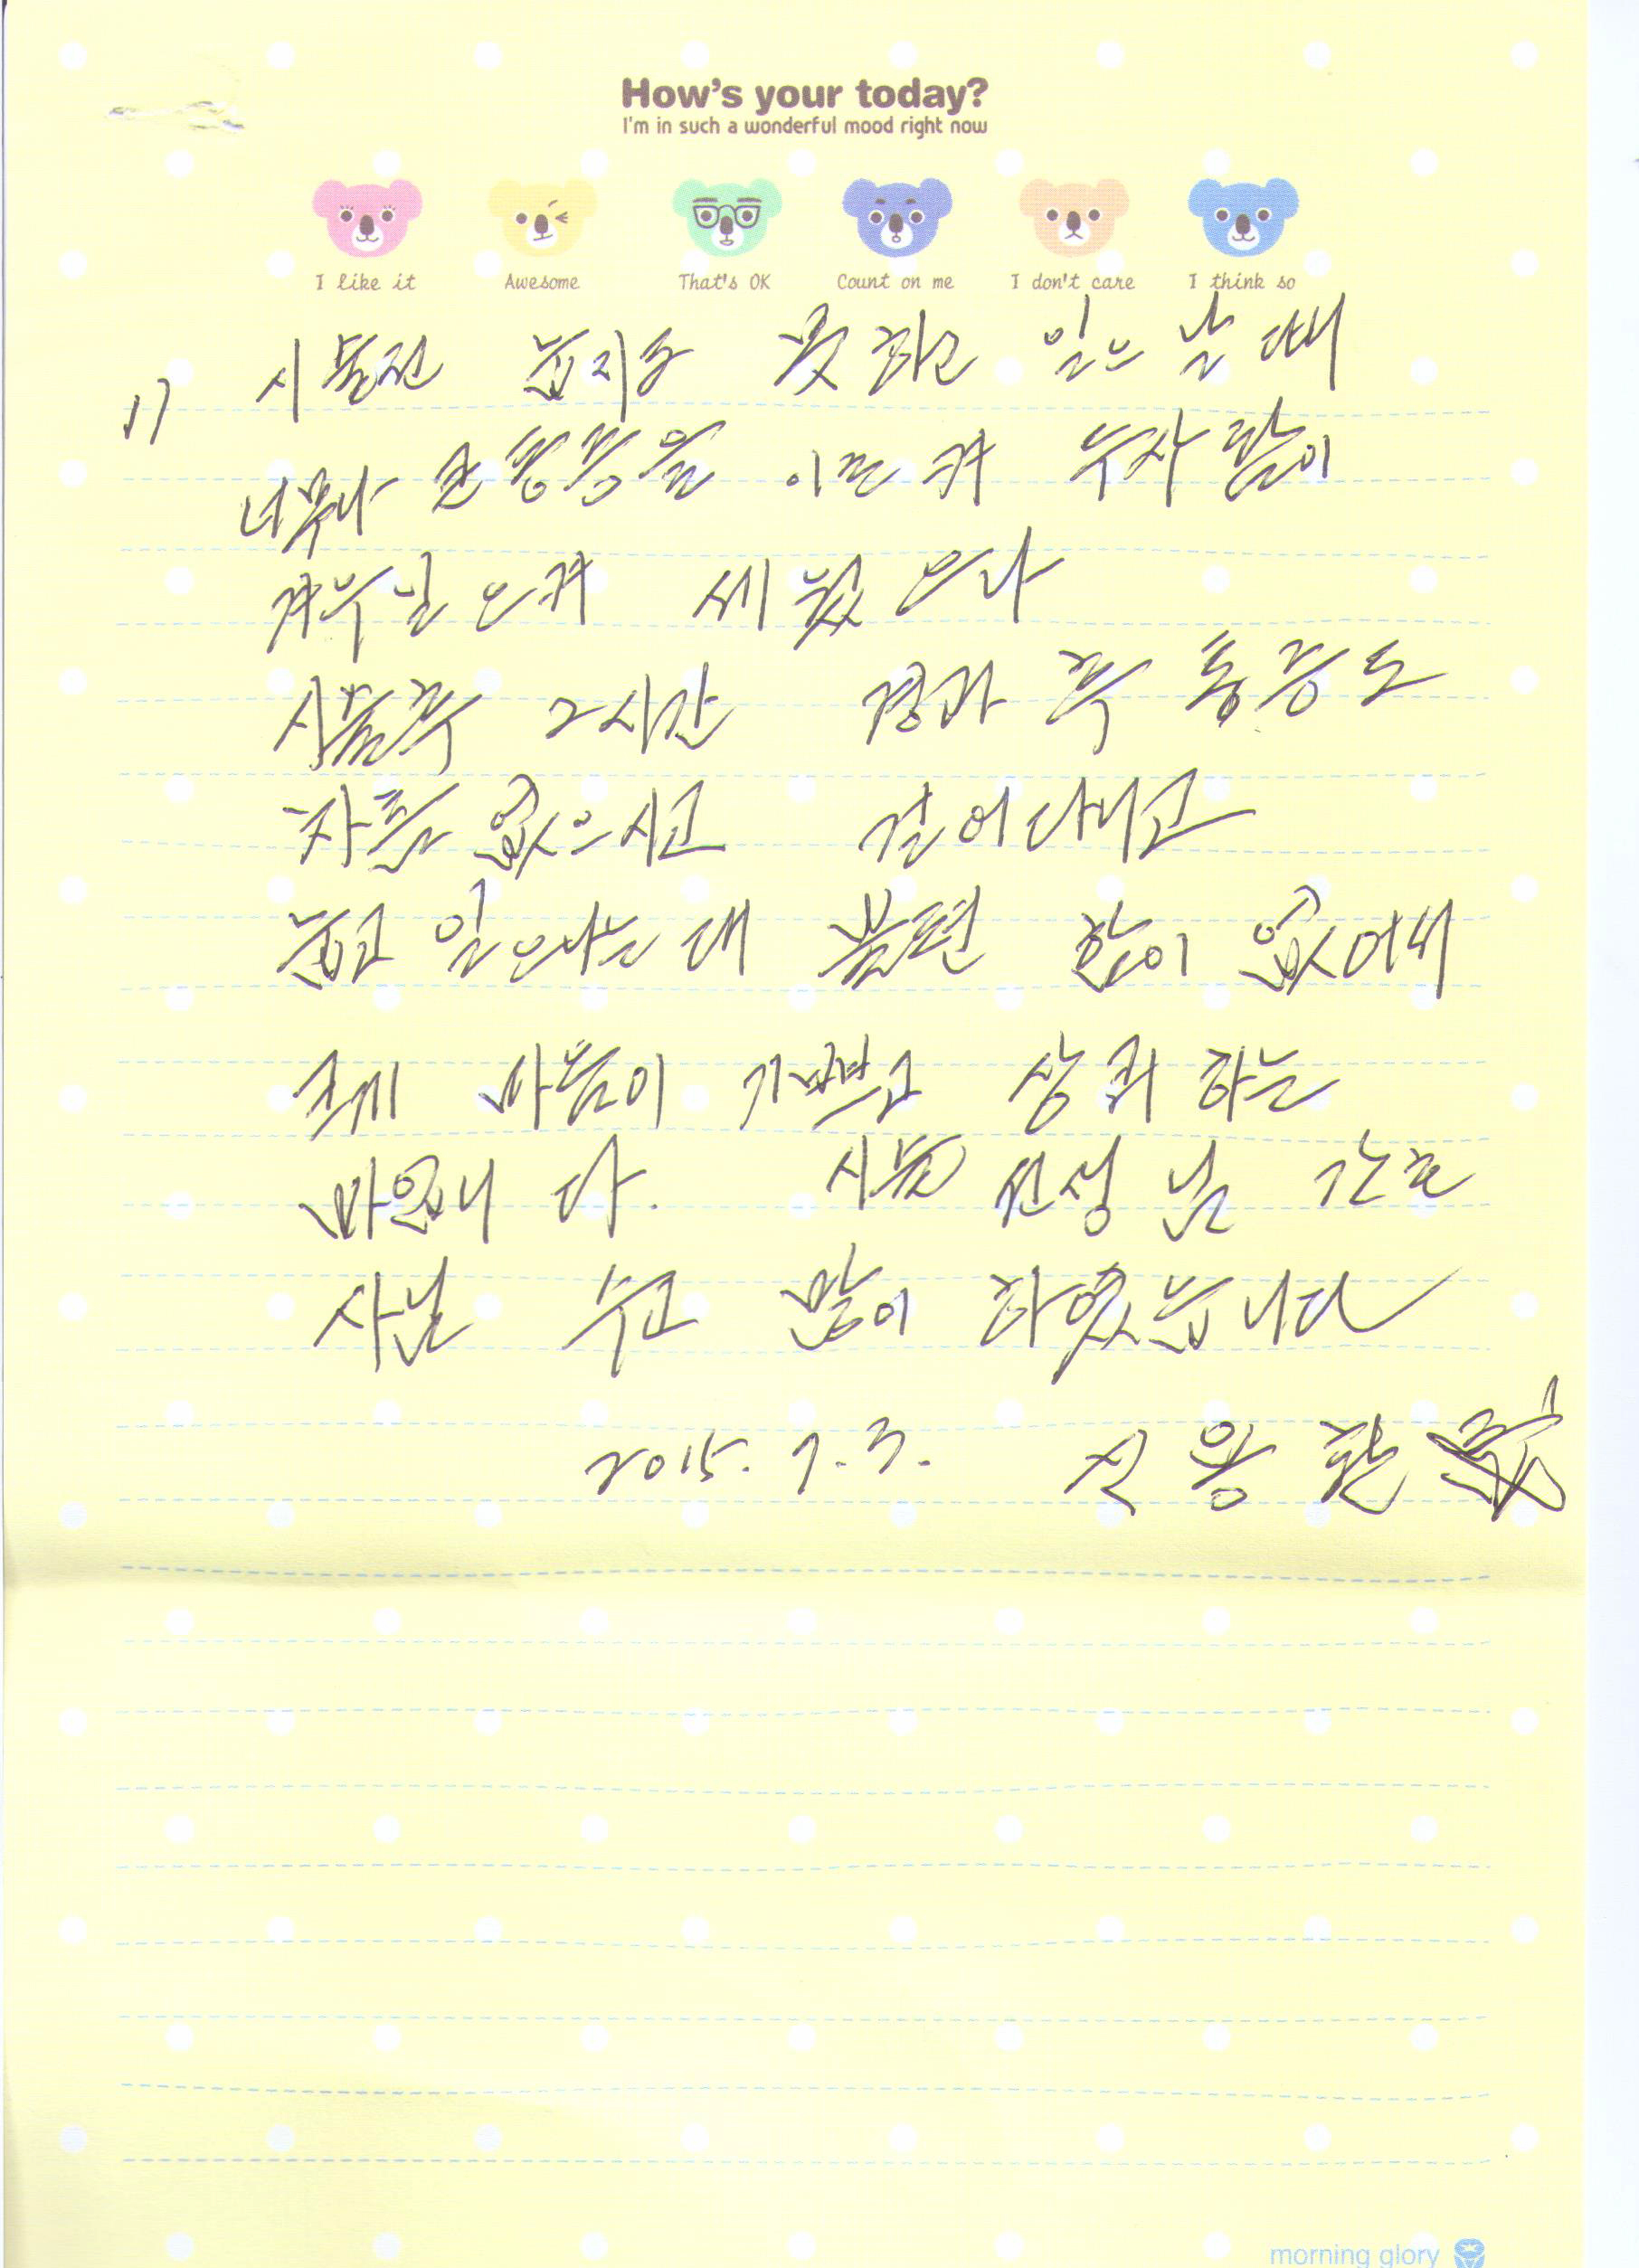 How's your today?
I'm in such a wonderful mood right now
I like it Awesome That's OK Count on me I don't care I think so
시술전 눕지도 못하고 일으날때
너무나 큰 통증을 이르켜 두사람이
겨우 일으켜 세웠으나
시술후 2시간 경과 후 통증도
차츰 없으시고 걸어다니고
눕고 일으나는대 불편함이 없어매
크게 마음이 기쁘고 상쾌하는
바입니다. 시술 선생님 간호
사님 수고 많이 하였습니다
2015. 7. 3.
morning glory